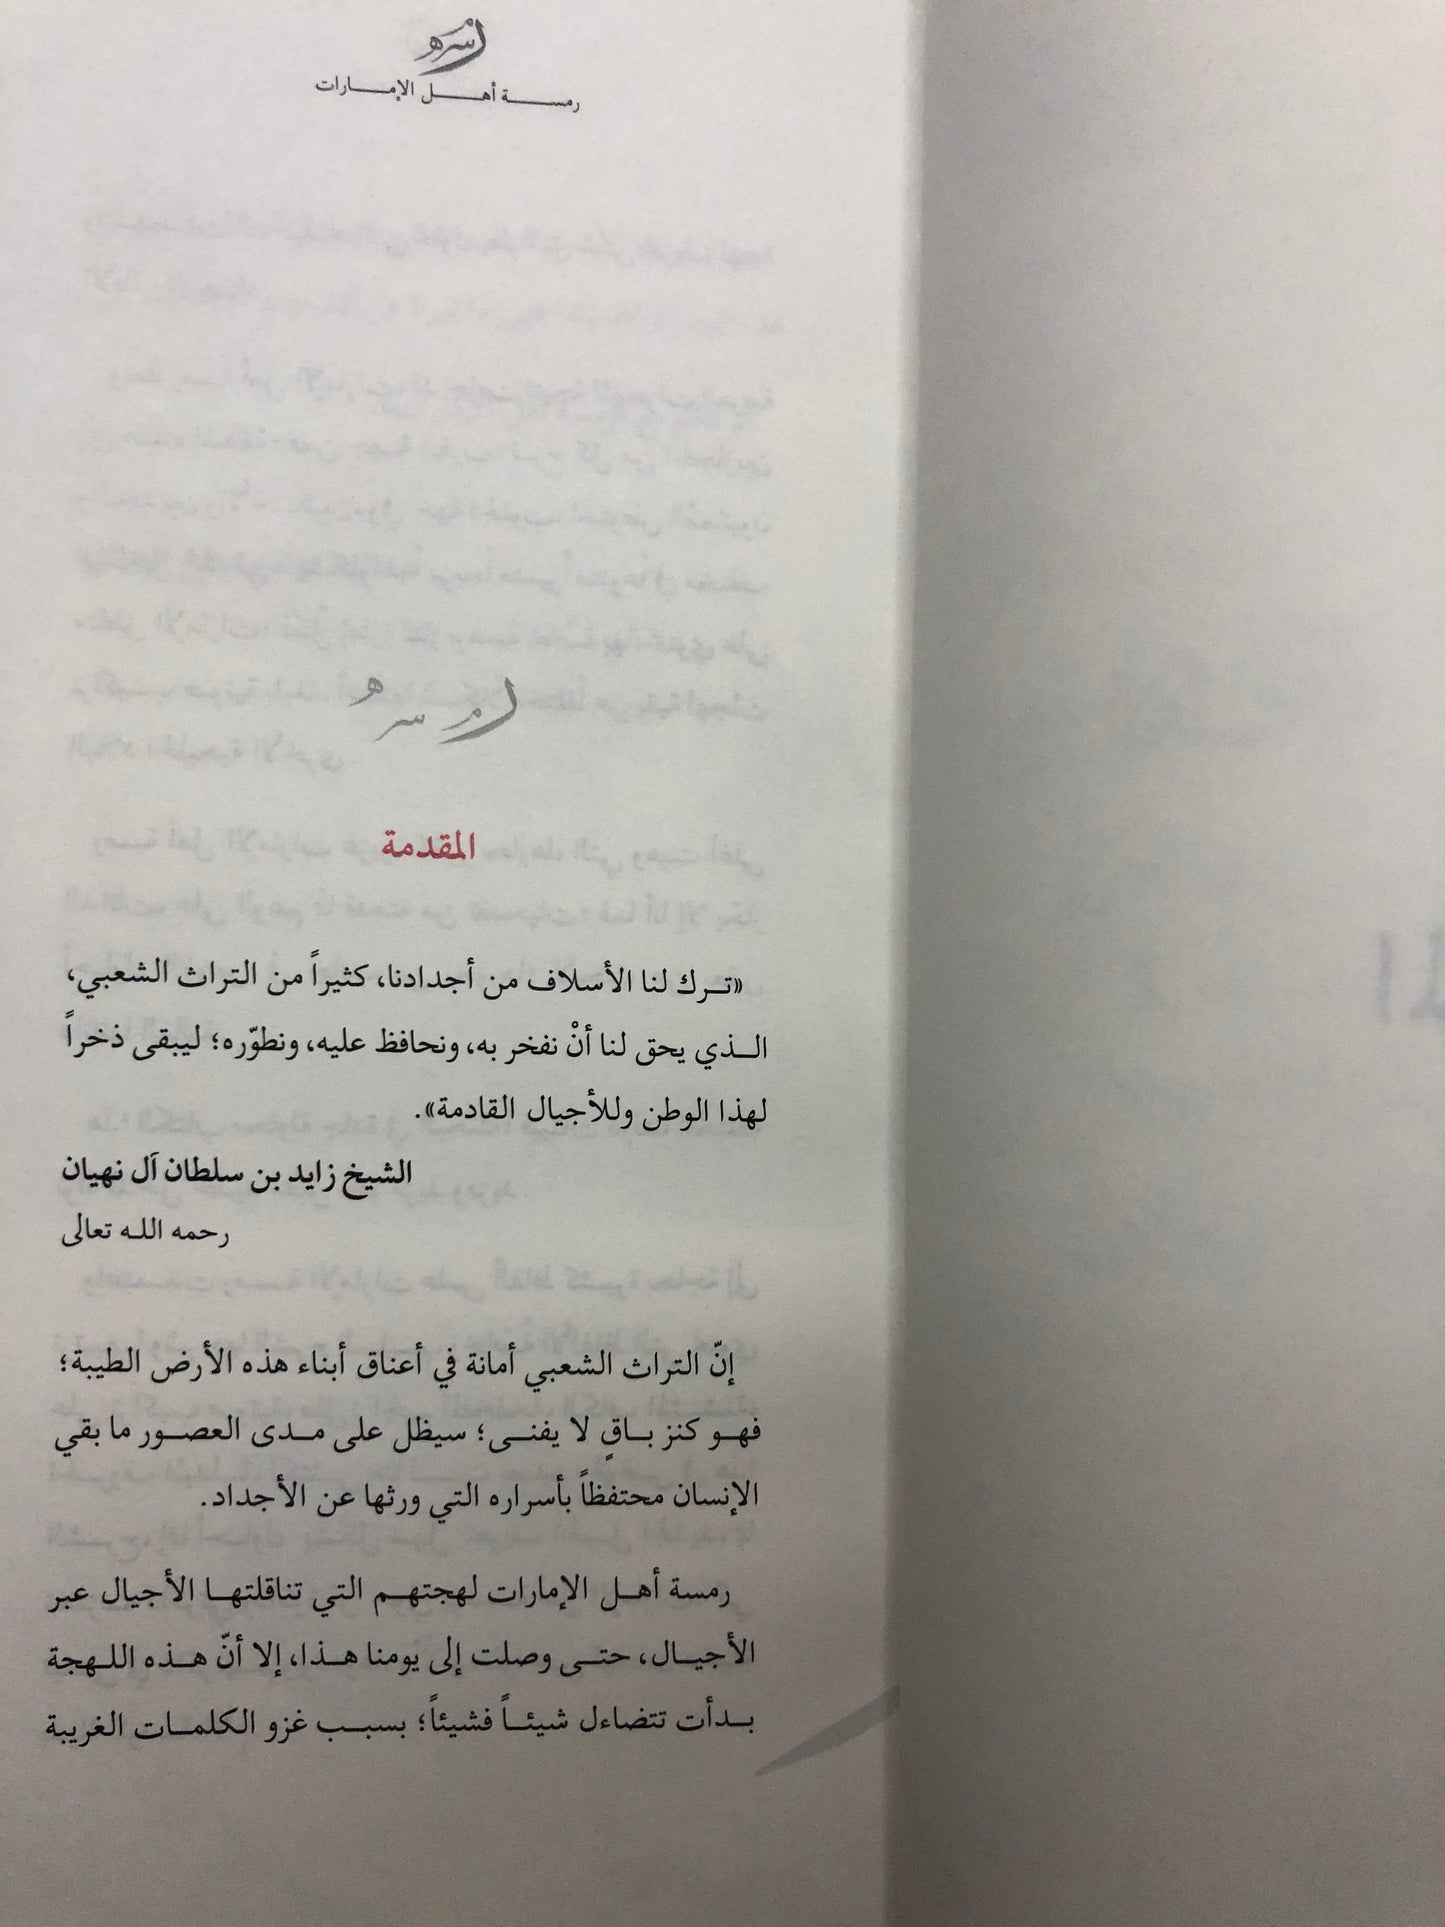 رمسه
رمســـــة أهـــــل الإمـــــارات
رمسه
المقدمة
«تــرك لنا الأسلاف من أجدادنا، كثيراً من التراث الشعبي،
الــذي يحق لنا أنْ نفخر به، ونحافظ عليه، ونطوّره؛ ليبقى ذخراً
لهذا الوطن وللأجيال القادمة».
الشيخ زايد بن سلطان آل نهيان
رحمه الله تعالى
إنّ التراث الشعبي أمانة في أعناق أبناء هذه الأرض الطيبة؛
فهــو كنز بــاقٍ لا يفنــى؛ سيظل على مــدى العصــور ما بقي
الإنسان محتفظاً بأسراره التي ورثها عن الأجداد.
رمسة أهــل الإمارات لهجتهــم التي تناقلتهــا الأجيال عبر
الأجيــال، حتــى وصلت إلى يومنا هــذا، إلا أنّ هــذه اللــهجة
بــدأت تتضاءل شيئــاً فشيئاً؛ بسبــب غزو الكلمــات الغريبة